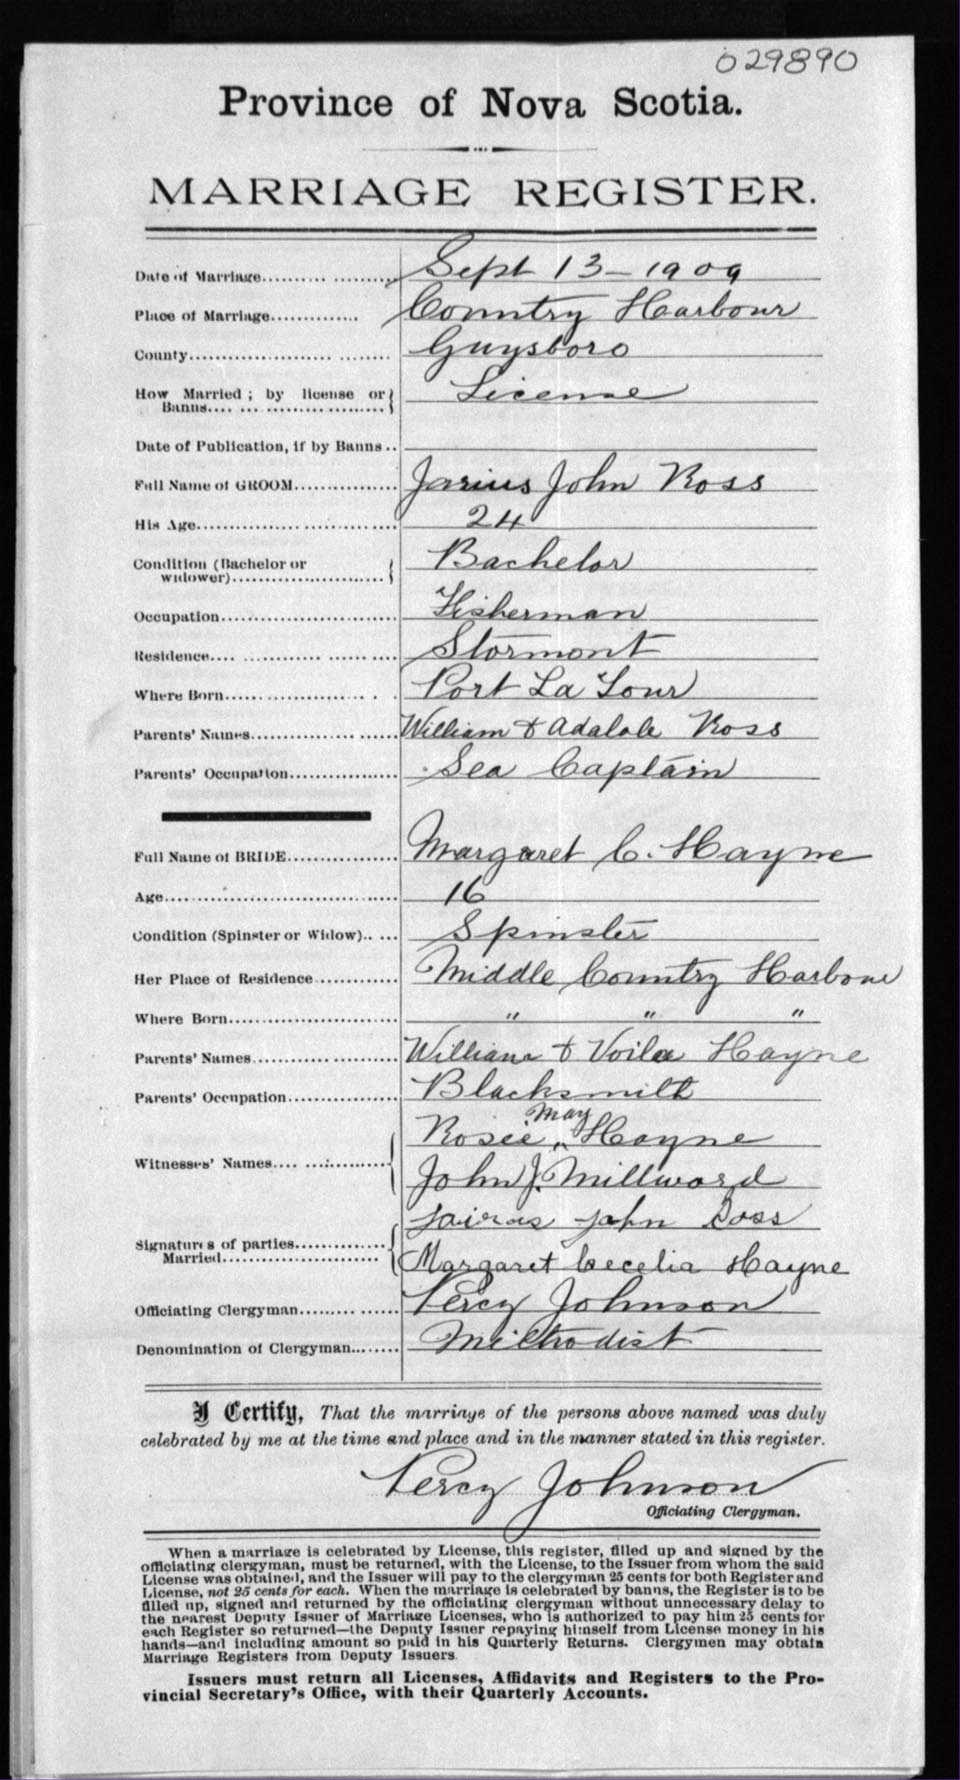 029890
Province of Nova Scotia.
MARRIAGE REGISTER.
Date of Marriage.......... Sept 13 - 1909
Place of Marriage............. Country Harbour
County.............................. Guysboro
How Married; by license or License
Banns..............................
Date of Publication, if by Banns ..
Full Name of GROOM............... Jarius John Ross
His Age.............................. 24
Condition (Bachelor or Bachelor
widower)..............................
Occupation.............................. Fisherman
Residence.............................. Stormont
Where Born.............................. Port La Tour
Parents' Names.............................. William & Adalale Ross
Parents' Occupation.................. Sea Captain
Full Name of BRIDE.................. Margaret C. Hayne
Age.............................. 16
Condition (Spinster or Widow)..... Spinster
Her Place of Residence............. Middle Country Harbour
Where Born.............................. " " "
Parents' Names.............................. William & Voila Hayne
Parents' Occupation.................. Blacksmith
May
Rosie " Hayne
Witnesses' Names.................. John J. Millword
Jairas John Ross
Signatures of parties
Married.............................. Margaret Cecelia Hayne
Officiating Clergyman............... Percy Johnson
Denomination of Clergyman....... Methodist
I Certify, That the marriage of the persons above named was duly
celebrated by me at the time and place and in the manner stated in this register.
Percy Johnson
Officiating Clergyman.
When a marriage is celebrated by License, this register, filled up and signed by the
officiating clergyman, must be returned, with the License, to the Issuer from whom the said
License was obtained, and the Issuer will pay to the clergyman 25 cents for both Register and
License, not 25 cents for each. When the marriage is celebrated by banns, the Register is to be
filled up, signed and returned by the officiating clergyman without unnecessary delay to
the nearest Deputy Issuer of Marriage Licenses, who is authorized to pay him 25 cents for
each Register so returned—the Deputy Issuer repaying himself from License money in his
hands—and including amount so paid in his Quarterly Returns. Clergymen may obtain
Marriage Registers from Deputy Issuers.
Issuers must return all Licenses, Affidavits and Registers to the Pro-
vincial Secretary's Office, with their Quarterly Accounts.